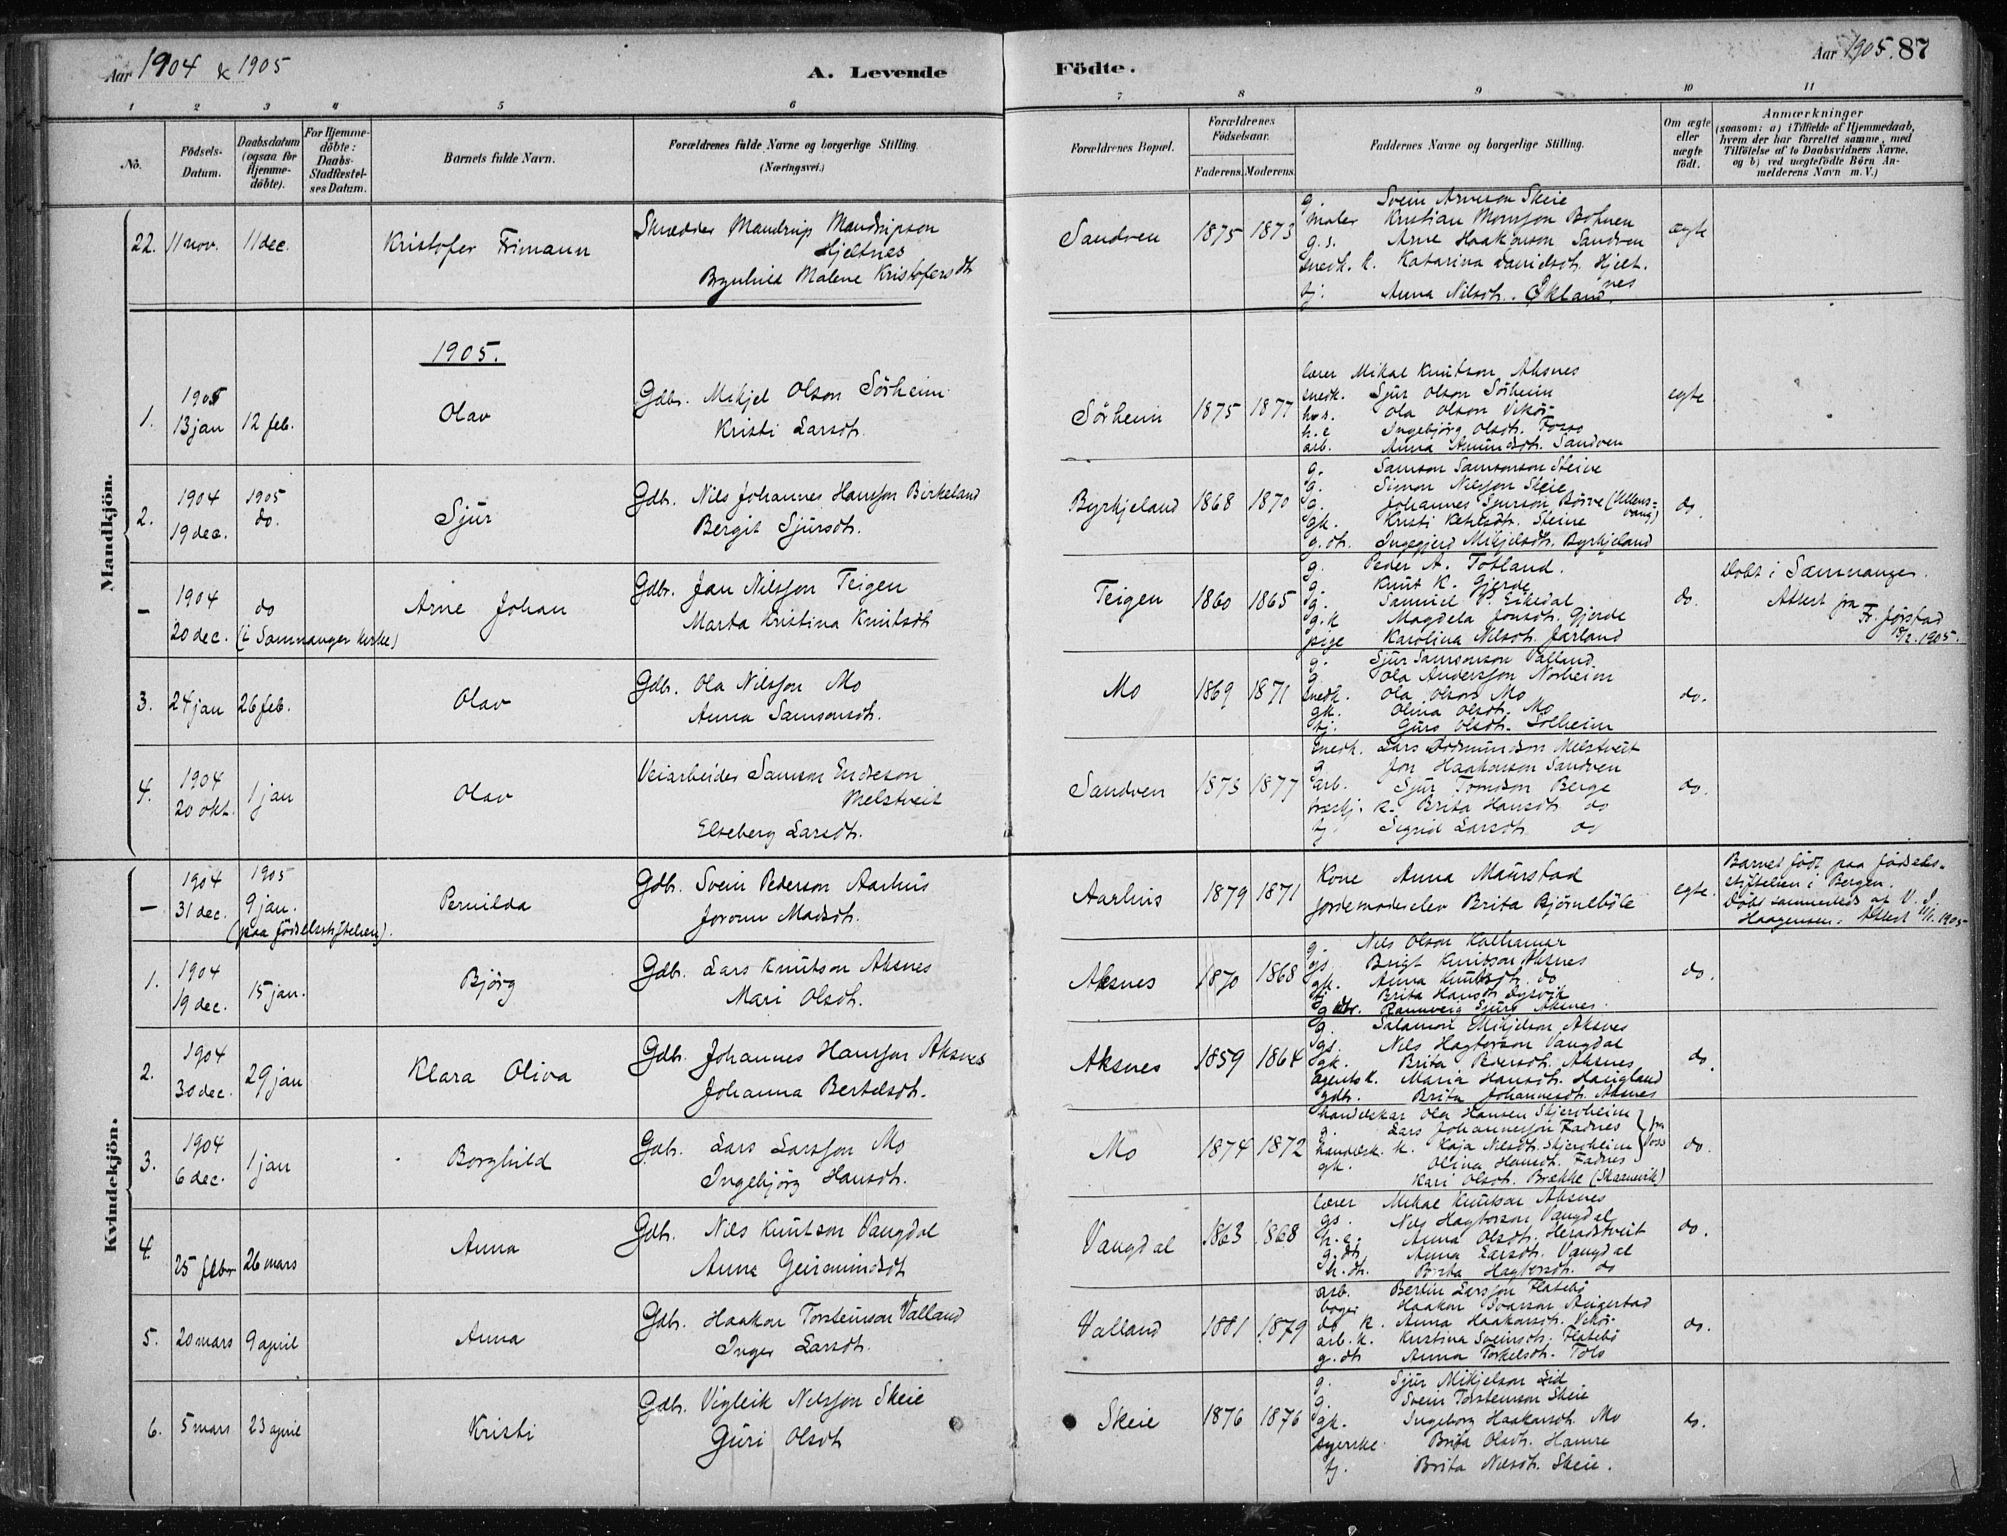 Aar 1904 & 1905
A. Levende
Födte.
Aar 1905. 87
1 2 3 4 5 6 7 8 9 10 11
No.
Födsels-Datum.
Daabsdatum (ogsaa for Hjemme-döbte).
For Hjemme-döbte: Daabs-Stadfæstel-ses Datum.
Barnets fulde Navn.
Forældrenes fulde Navne og borgerlige Stilling. (Næringsvei.)
Forældrenes Bopæl.
Forældrenes Födselsaar.
Faderens. Moderens.
Faddernes Navne og borgerlige Stilling.
Om ægte eller uægte födt.
Anmærkninger
(saasom: a) i Tilfælde af Hjemmedaab, hvem der har forrettet samme, med Tilföielse af to Daabsvidners Navne, og b) ved uægtefödte Börn An-melderens Navn m. V.)
Mandkjön.
22. 11 nov. 11 dec. Kristofer Frimann
Skrædder Mandrup Mandrupson
Hjeltnes
Brynhild Malene Kristofersdt.
Sandven 1875 1873
g. Svein Arneson Skeie
maler Kristian Monsson Botnen
g.s. Arne Haakonson Sandven
snedk. k. Katarina Davidsdt. Hjelt-
nes
tj. Anna Nilsdt. Økland
ægte
1905.
1. 1905 13 jan 12 feb. Olav
Gdbr. Mikjel Olson Sörheim
Kristi Larsdt.
Sörheim 1875 1877
lærer Mikal Knutson Aksnes
snedk. Sjur Olson Sörheim
h.s. Ola Olson Vikör
h.e. Ingebjörg Olsdt. Foss
arb. Anna Amundsdt. Sandven
egte
2. 1904 19 dec. 1905 do. Sjur
Gdbr. Nils Johannes Hansson Birkeland
Bergit Sjursdt.
Byrkjeland 1868 1870
g. Samson Samsonson Steine
g. Simon Nilsson Skeie
g. Johannes Sjurson Börve (Ullens-vang)
gk. Kristi Ketilsdt. Steine
g.dt. Ingegjerd Mikjelsdt. Byrkjeland
do.
- 1904 20 dec. do (i Samnanger kirke) Arne Johan
Gdbr. Jan Nilsson Teigen
Marta Kristina Knutsdt
Teigen 1860 1865
g. Peder A. Totland.
g. Knut K. Gjerde
g. Samuel P. Eikedal
g.k Magdela Jonsdt. Gjerde
pige Karolina Nilsdt. Jarland
do.
Döbt i Samnanger.
Attest fra
Fr. Jörstad
18/2. 1905.
3. 24 jan 26 feb. Olav
Gdbr. Ola Nilsson Mo
Anna Samsonsdt.
Mo 1869 1871
g. Sjur Samsonson Valland
g. Ola Andersson Norheim
snedk. Ola Olson Mo
gk. Olina Olsdt. Mo
tj. Guro Olsdt. Solheim
do.
4. 1904 20 okt. 1 jan Olav
Veiarbeider Samson Endreson
Melstveit
Elseberg Larsdt.
Sandven 1873 1877
snedk. Lars Oddmundson Melstveit
g. Jon Haakonson Sandven
arb. Sjur Tomson Berge
k. Brita Hansdt do
tj. Sigrid Larsdt do
do.
Kvindekjön.
- 1904 31 dec. 1905 9 jan. (paa födselsstiftelsen). Pernilda
Gdb. Svein Pederson Aarhus
Jorunn Madsdt.
Aarhus 1879 1871
Kone Anna Maurstad
Jordemoderelev Brita Björneböle
egte.
Barnet födt paa födsels-
stiftelsen i Bergen.
Döbt sammesteds af V. J.
Haagensen. Attest 11/1. 1905
1. 1904 19 dec. 15 jan. Bjørg
Gdb. Lars Knutson Aksnes
Mari Olsdt.
Aksnes 1870 1868
g. Nils Olson Kalhamar
gs. Brigt Knutson Aksnes
gk. Anna Knutsdt. do
tj Brita Hansdt
g.dtr. Rannveig Sjursdt Aksnes.
do.
2. 1904 30 dec. 29 jan Klara Oliva
Gdb. Johannes Hansson Aksnes
Johanna Bertelsdt.
Aksnes 1859 1864
g. Salamon Mikjelson Aksnes
gs. Nils Hagtorson Vangdal
gk. Brita Aksnes
agents k. Maria Hansdt. Haugland
gdt. Brita Johannesdt. Aksnes
do.
3. 1904 6 dec. 1 jan Borghild
Gdb. Lars Larsson Mo
Ingebjörg Hansdt.
Mo 1874 1872
handelskar Ola Hansen Skjerveheim
g. Lars Johannesson Fadnes
handelsk. k. Kaja Nilsdt. Skjerveheim
gk. Olina Hansdt. Fadnes
fra Voss
Kari Olsdt. Brække (Skaanevik)
do.
4. 25 febr 26 mars Anna
Gdb. Nils Knutson Vangdal
Anna Geirmundsdt
Vangdal 1863 1868
lærer Mikal Knutson Aksnes
gs. Nils Hagtorson Vangdal
h.e. Anna Olsdt. Heradstveit
g.dt. Anna Larsdt. Vangdal
h.dt. Brita Hagtorsdt. do
do.
5. 20 mars 9 april Anna
Gdb. Haakon Torsteinson Valland
Inger Larsdt.
Valland 1881 1879
arb. Bertin Larsson Flatebö
bager Haakon Ivarson Augestad
do k. Anna Haakonsdt. Vikör
arb. k. Kristina Sveinsdt. Flatebö
g.dt Anna Torkelsdt. Tolo
do.
6. 5 mars 23 april Kristi
Gdb. Vigleik Nilsson Skeie
Guri Olsdt
Skeie 1876 1876
g. Sjur Mikjelson Lid
g. Svein Torsteinson Skeie
gk. Ingeborg Haakonsdt. Mo
syerske Brita Olsdt. Hamre
tj. Brita Nilsdt. Skeie.
do.